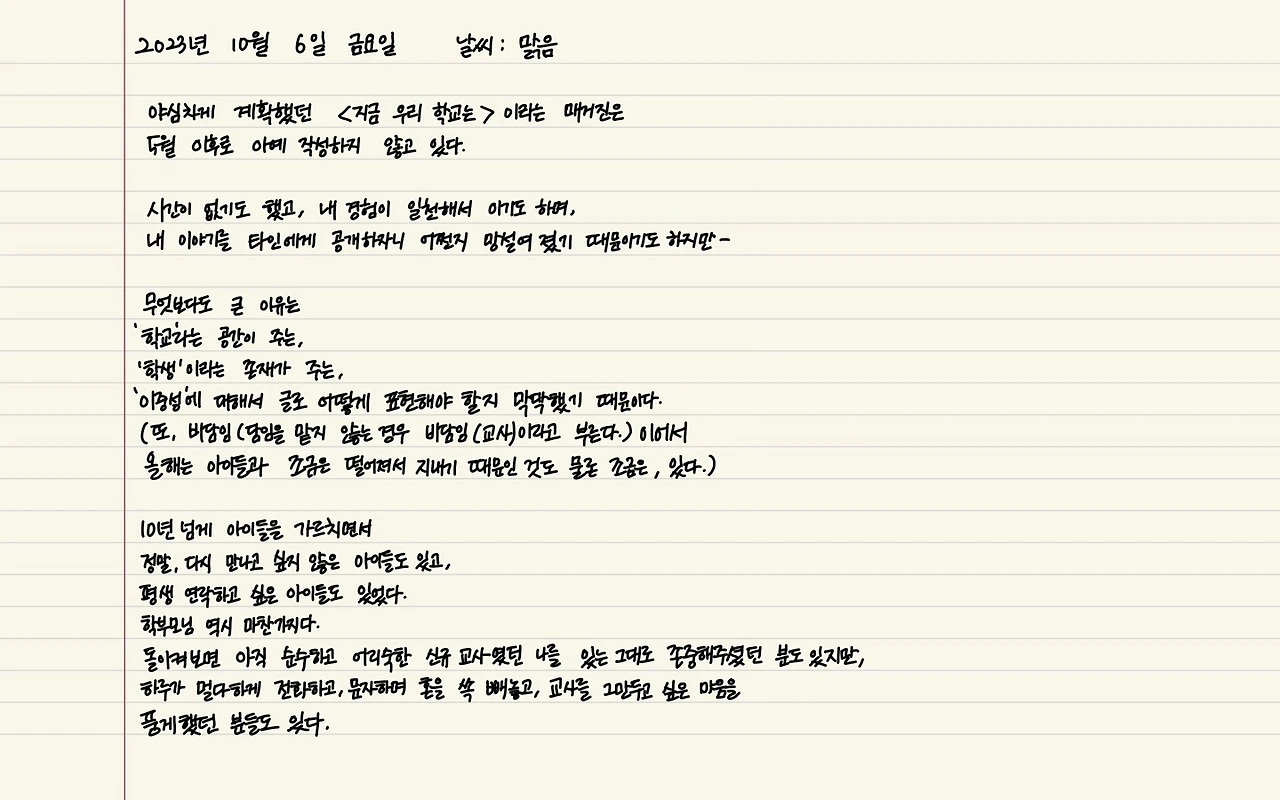 2023년 10월 6일 금요일 날씨 : 맑음
야심차게 계획했던 <지금 우리 학교는> 이라는 매거진은
5월 이후로 아예 작성하지 않고 있다.
시간이 없기도 했고, 내 경험이 일천해서 이기도 하며,
내 이야기를 타인에게 공개하자니 어쩐지 망설여 졌기 때문이기도 하지만-
무엇보다도 큰 이유는
'학교'라는 공간이 주는,
'학생'이라는 존재가 주는,
'이중성'에 대해서 글로 어떻게 표현해야 할지 막막했기 때문이다.
(또, 비담임(담임을 맡지 않는 경우 비담임(교사)이라고 부른다.) 이어서
올해는 아이들과 조금은 떨어져서 지내기 때문인 것도 물론 조금은, 있다.)
10년 넘게 아이들을 가르치면서
정말, 다시 만나고 싶지 않은 아이들도 있고,
평생 연락하고 싶은 아이들도 있었다.
학부모님 역시 마찬가지다.
돌이켜보면 아직 순수하고 어리숙한 신규 교사였던 나를 있는 그대로 존중해주셨던 분도 있지만,
하루가 멀다하게 전화하고, 문자하며 혼을 쏙 빼놓고, 교사를 그만두고 싶은 마음을
품게했던 분들도 있다.